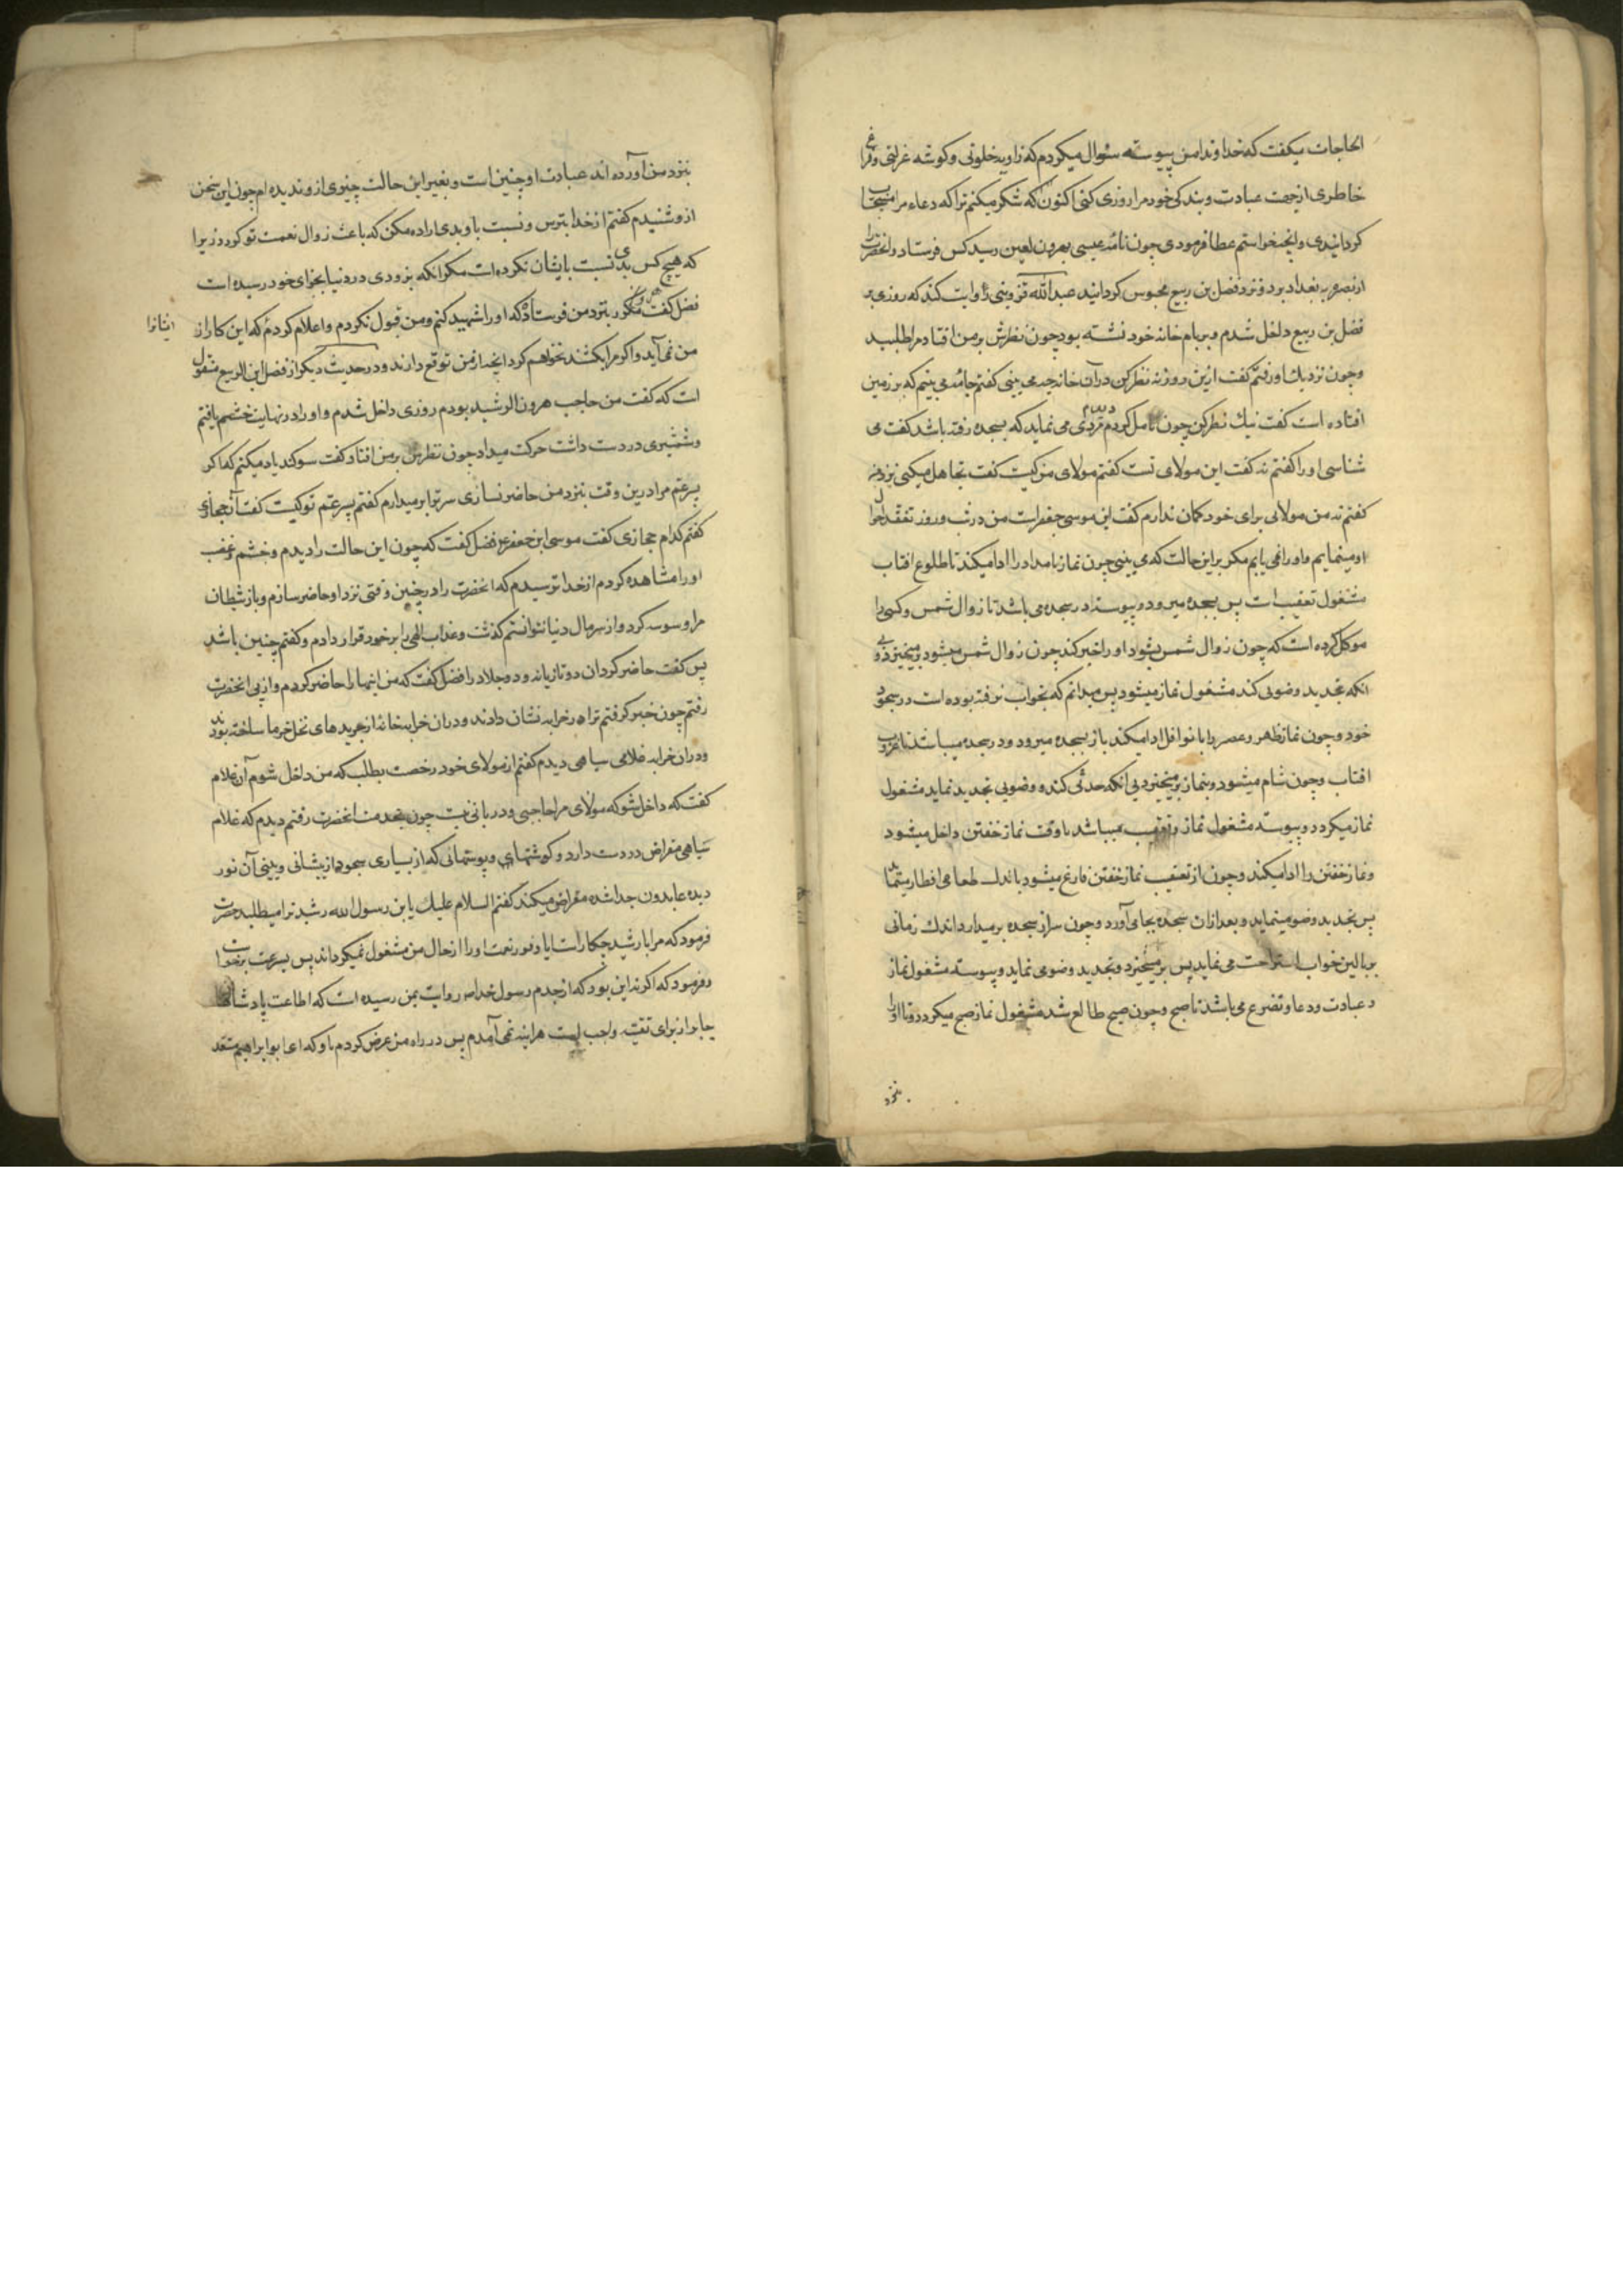 الحاجات میکفت که خداوندا من پیوسته سؤال میکردم که زاویه خلوتی و کوشه عزلتی و فراغ
خاطری از جهت عبادت و بندکی خود مرا روزی کنی اکنون که شکر میکنم ترا که دعاء مرا مستجاب
کردانیدی و انچه میخواستم عطا فرمودی چون نامه عیسی بهرون لعین رسید کس فرستاد و انحضرت را
از بصره به بغداد برد و نزد فضل بن ربیع محبوس کردانید عبد الله قزوینی روایت کند که روزی بر
فضل بن ربیع داخل شدم و بر بام خانه خود نشسته بود چون نظرش بر من افتاد مرا طلبید
و چون نزدیك او رفتم کفت ازین روزنه نظر کن در آن خانه چه می بینی کفتم جامه می بینم که بر زمین
افتاده است کفت نیك نظر کن چون تامل کردم مردی می نماید که بسجده رفته باشد کفت می
شناسی او را کفتم نه کفت این مولای تست کفتم مولای من کیست کفت تجاهل میکنی نزد من
کفتم نه من مولائی برای خود کمان ندارم کفت این موسی جعفر است من در شب و روز تفقد احوال
او مینمایم و او را نمی یابم مکر بر این حالت که می بینی چون نماز بامداد را ادا میکند تا طلوع افتاب
مشغول تعقیب است پس بسجده میرود و پیوسته در سجده می باشد تا زوال شمس و کسی را
موکل کرده است که چون زوال شمس بشود او را خبر کند چون زوال شمس میشود برمیخیزد و بی
انکه تجدید وضویی کند مشغول نماز میشود پس میدانم که بخواب نرفته بوده است در سجود
خود و چون نماز ظهر و عصر را با نوافل ادا میکند باز بسجده میرود و در سجده میباشد تا غروب
افتاب و چون شام میشود و بنماز برمیخیزد بی انکه حدثی کند و وضویی تجدید نماید مشغول
نماز میکردد و پیوسته مشغول نماز و تعقیب میباشد تا وقت نماز خفتن داخل میشود
و نماز خفتن را ادا میکند و چون از تعقیب نماز خفتن فارغ میشود باندك طعامی افطار مینماید
پس تجدید وضو مینماید و بعد از ان سجده بجا می آورد و چون سر از سجده برمیدارد اندك زمانی
بر بالین خواب استراحت می نماید پس برمیخیزد و تجدید وضو می نماید و پیوسته مشغول نماز
و عبادت و دعا و تضرع می باشد تا صبح و چون صبح طالع شد مشغول نماز صبح میکردد و تا او را
بنزد
بنزد من آورده اند عبادت او چنین است و بغیر این حالت چیزی از و ندیده ام چون این سخن
از و شنیدم کفتم از خدا بترس و نسبت باو بدی اراده مکن که باعث زوال نعمت تو کردد زیرا
که هیچ کس بدی نسبت بایشان نکرده است مکر انکه بزودی در دنیا بجزای خود رسیده است
فضل کفت مکرر بنزد من فرستاد که او را شهید کنم و من قبول نکردم و اعلام کردم که این کار از
ایشانرا
من نمی آید و اکر مرا بکشند نخواهم کرد انچه از من توقع دارند و در حدیث دیکر از فضل ابن الربیع منقول
است که کفت من حاجب هرون الرشید بودم روزی داخل شدم و او را در نهایت خشم یافتم
و شمشیری در دست داشت حرکت میداد چون نظرش بر من افتاد کفت سوکند یاد میکنم که اکر
پسر عم مرا درین وقت بنزد من حاضر نسازی سر ترا برمیدارم کفتم پسر عم تو کیست کفت آن حجازی
کفتم کدام حجازی کفت موسی ابن جعفر فضل کفت که چون این حالت را دیدم و خشم و غضب
او را مشاهده کردم از خدا ترسیدم که انحضرت را در چنین وقتی نزد او حاضر سازم و باز شیطان
مرا وسوسه کرد و از سر مال دنیا نتوانستم کذشت و عذاب الهی را بر خود قرار دادم و کفتم چنین باشد
پس کفت حاضر کردان دو تازیانه و دو جلاد را فضل کفت که من اینها را حاضر کردم و از پی انحضرت
رفتم چون خبر کرفتم مرا در خرابه نشان دادند و در ان خرابه خانه از جریدهای نخل خرما ساخته بودند
و در ان خرابه غلامی سیاهی دیدم کفتم از مولای خود رخصت بطلب که من داخل شوم آن غلام
کفت که داخل شو که مولای مرا حاجبی و دربانی نیست چون بخدمت انحضرت رفتم دیدم که غلام
سیاهی مقراض در دست دارد و کوشتهای و پوستهائی که از بسیاری سجود از پیشانی و بینی آن نور
دیده عابدون جدا شده مقراض میکند کفتم السلام علیك یا بن رسول الله رشید ترا میطلبد حضرت
فرمود که مرا با رشید چکار است ایا وفور نعمت او را از حال من مشغول نمیکرداند پس بسرعت برخواست
و فرمود که اکر نه این بود که از جدم رسول خدا روایت بمن رسیده است که اطاعت پادشاهان
جابر از برای تقیه واجب است هراینه نمی آمدم پس در راه من عرض کردم باو که